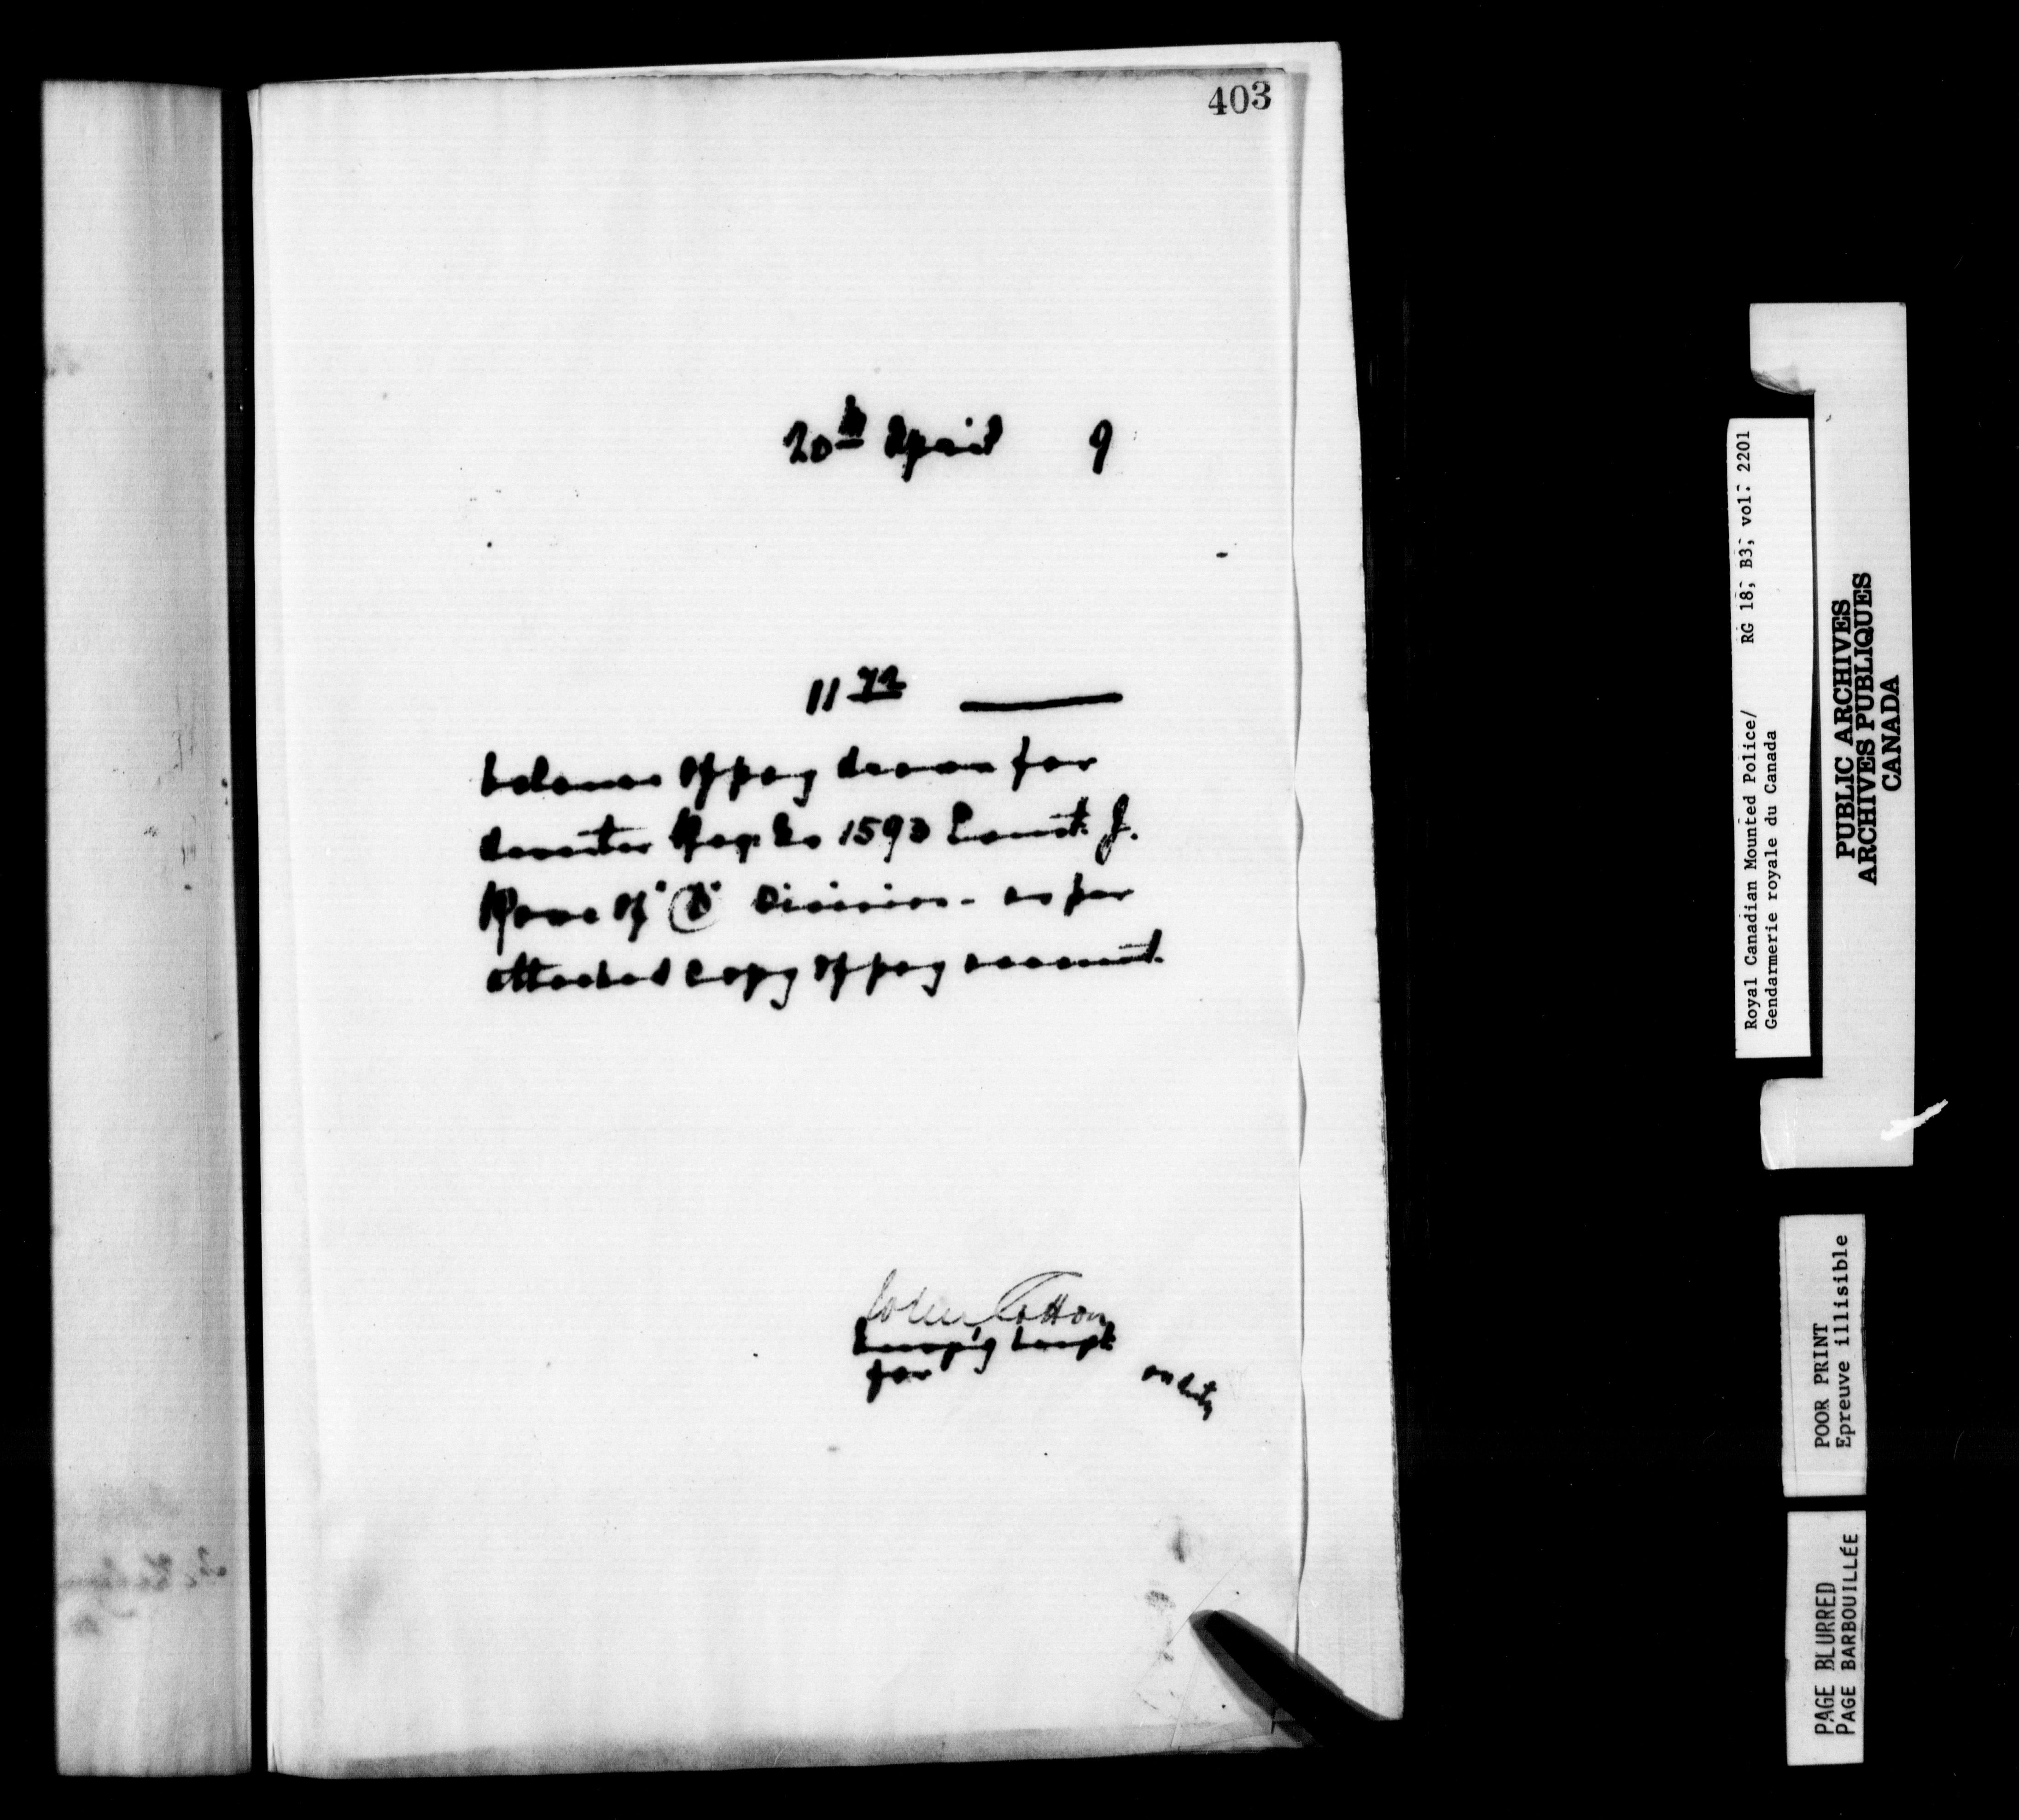 403
20th April 9
11 72
balance of pay drawn for
deserter Reg. No 1593 Const. J.
Rowe of "D" Division - as per
attached copy of pay account.
John Cotton
Comp'g
for on duty
Royal Canadian Mounted Police/ RG 18, B3, vol. 2201
Gendarmerie royale du Canada
PUBLIC ARCHIVES
ARCHIVES PUBLIQUES
CANADA
POOR PRINT
Epreuve illisible
PAGE BLURRED
PAGE BARBOUILLÉE